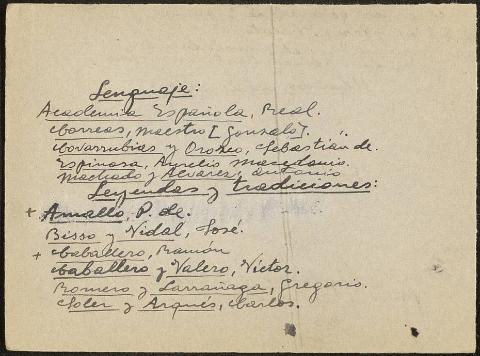 Lenguaje:
Academia Española, Real.
Correas, Maestro [Gonzalo].
Covarrubias y Orozco, Sebastián de.
Espinosa, Aurelio Macedonio.
Machado y Alvarez, Antonio
Leyendas y tradiciones:
+ Amallo, P. de.
Bisso y Vidal, José.
+ Caballero, Ramón
Caballero y Valero, Víctor.
Romero y Larrañaga, Gregorio.
Soler y Arqués, Carlos.